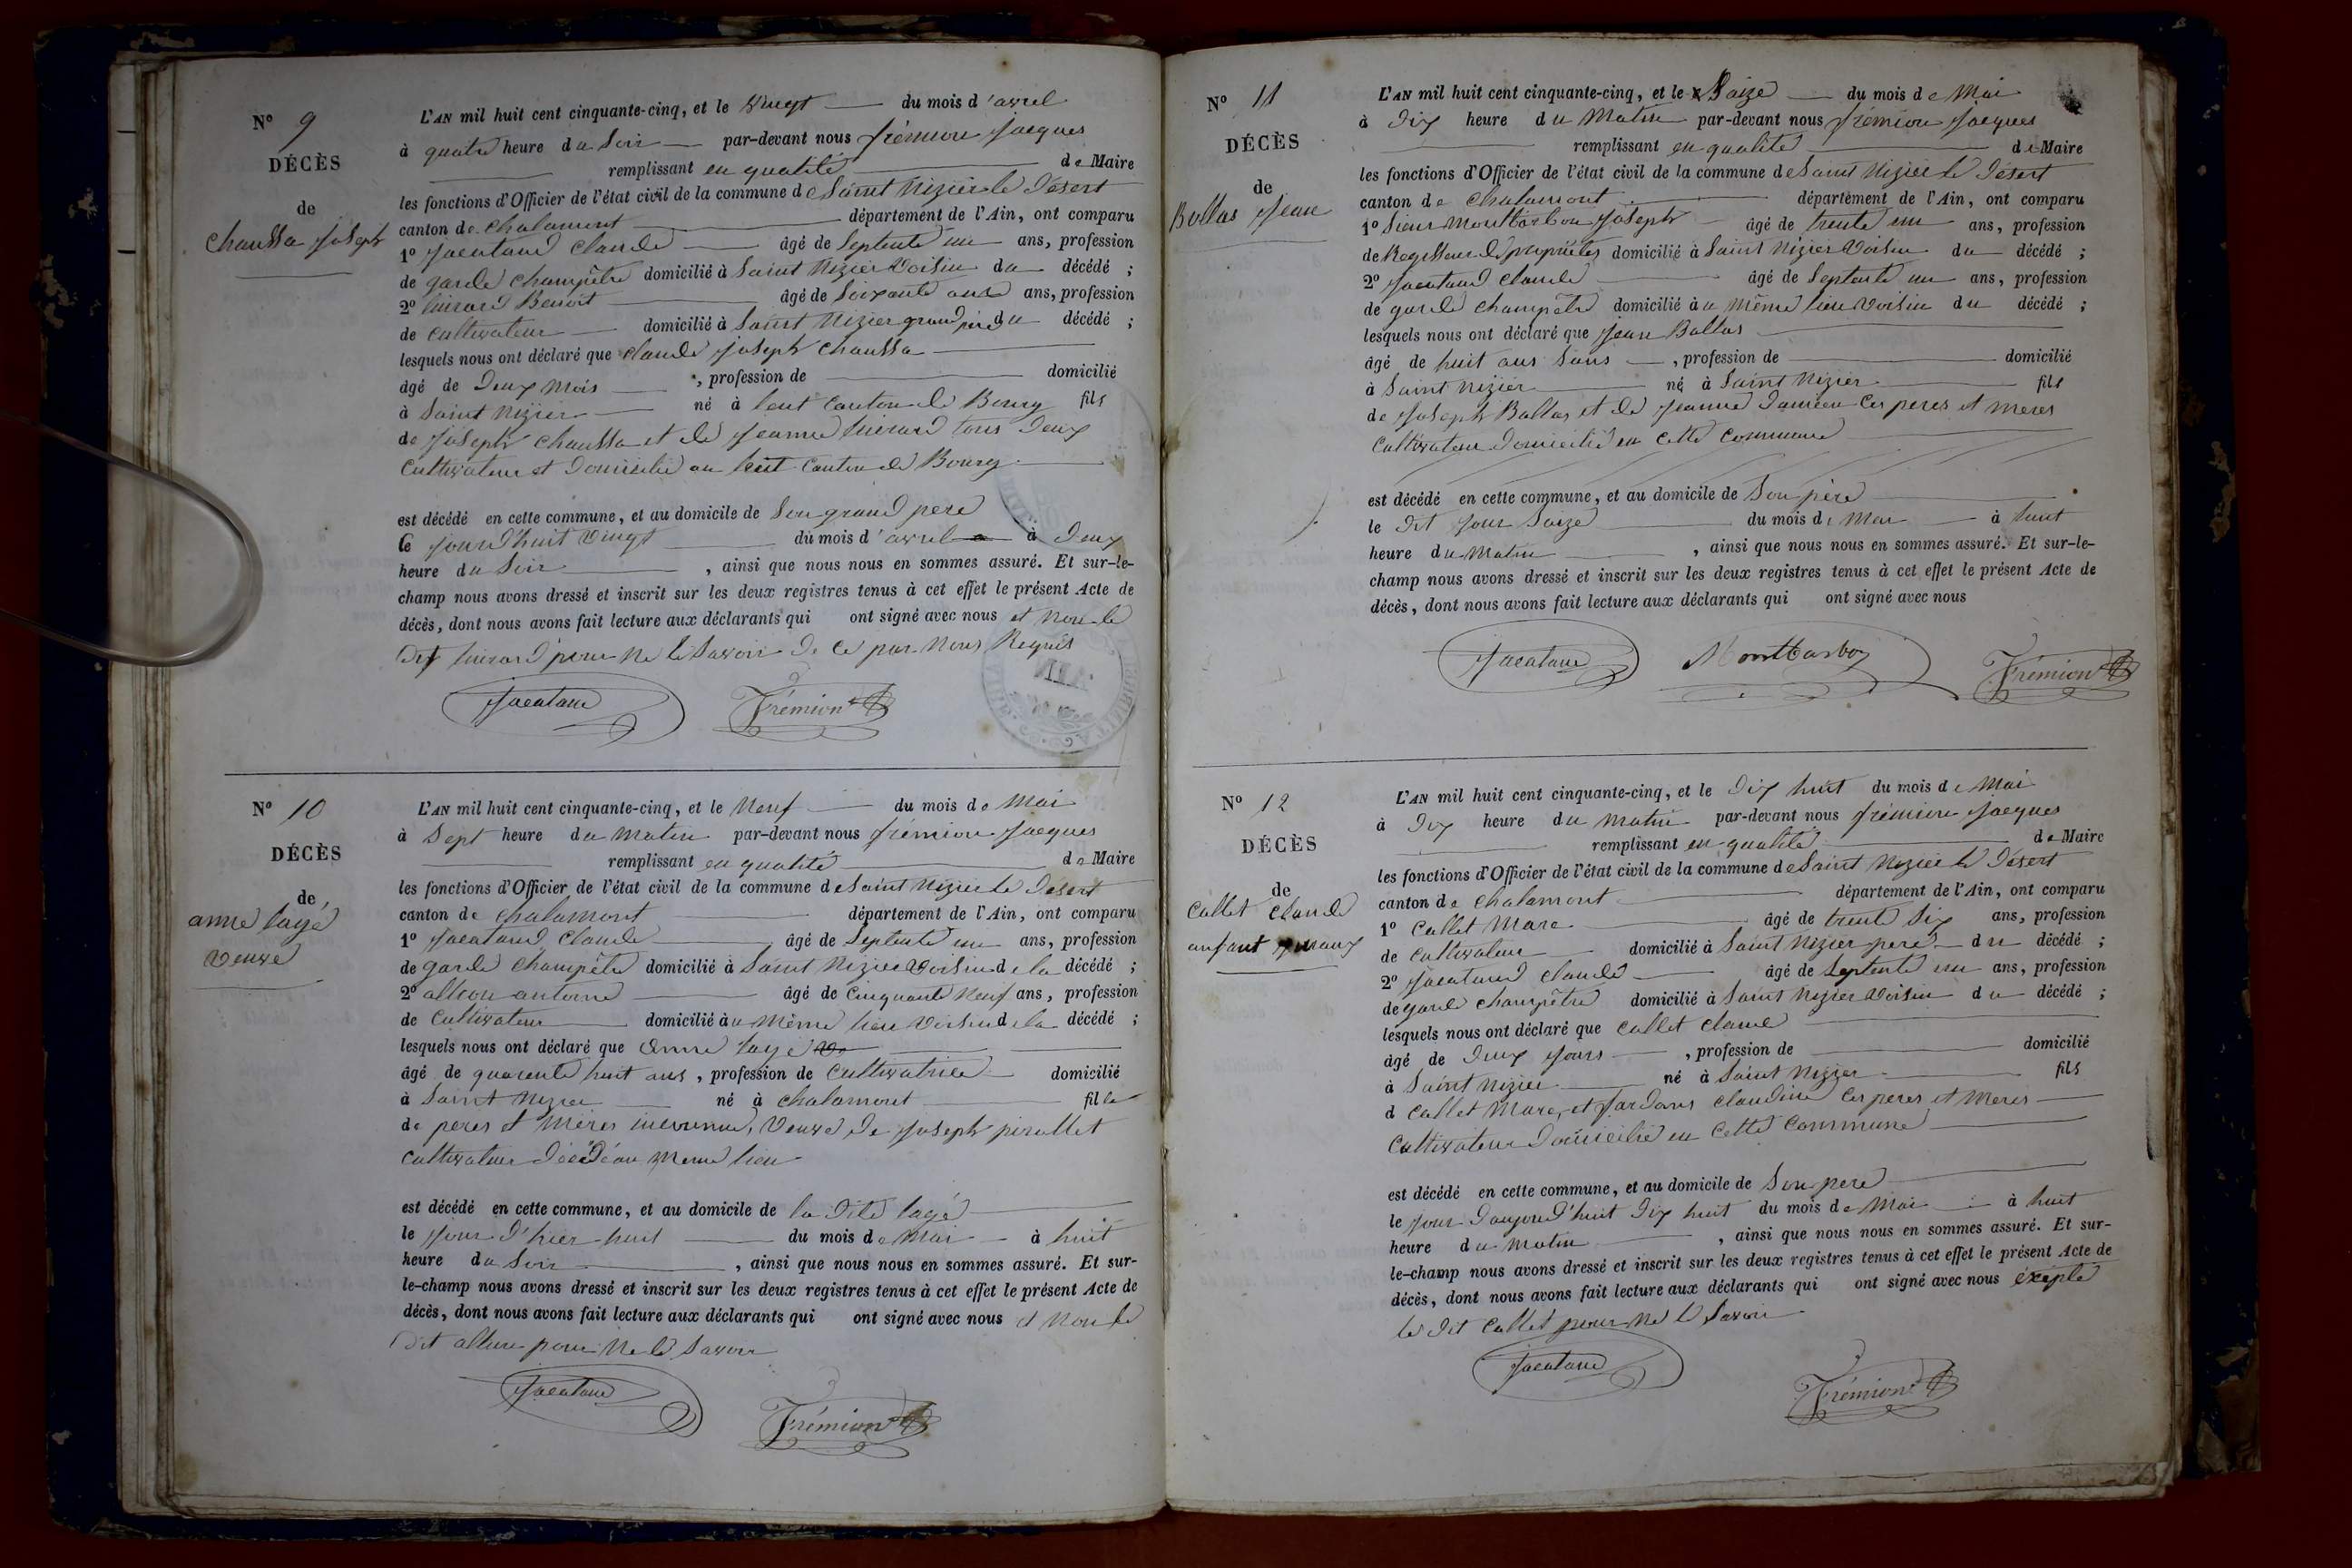 N° 9
DÉCÈS
de
Chaussa Joseph
L'AN mil huit cent cinquante-cinq, et le vingt du mois d'avril
à quatre heure du soir par-devant nous frémion Jacques
remplissant en qualité de Maire
les fonctions d'Officier de l'état civil de la commune de Saint Nizier le Désert
canton de Chalamont département de l'Ain, ont comparu
1° Jacataud Claude âgé de septente un ans, profession
de garde champêtre domicilié à Saint Nizier voisin du décédé ;
2° Benoit âgé de soixante ans, profession
de cultivateur domicilié à Saint Nizier grand père du décédé ;
lesquels nous ont déclaré que claude joseph chaussa
âgé de deux mois , profession de domicilié
à Saint Nizier né à lent canton de Bourg fils
de joseph chaussa et de jeanne tous deux
cultivateur et domicilié au lent canton de Bourg
est décédé en cette commune, et au domicile de son grand pere
le jourd'huit vingt du mois d'avril à deux
heure du soir , ainsi que nous nous en sommes assuré. Et sur-le-
champ nous avons dressé et inscrit sur les deux registres tenus à cet effet le présent Acte de
décès, dont nous avons fait lecture aux déclarants qui ont signé avec nous et non le
dit pour ne le savoir de ce par nous Requis
Jacataud Frémion
N° 10
DÉCÈS
de
anne layé
veuve
L'AN mil huit cent cinquante-cinq, et le neuf du mois de Mai
à sept heure du matin par-devant nous frémion Jacques
remplissant en qualité de Maire
les fonctions d'Officier de l'état civil de la commune de Saint Nizier le Désert
canton de Chalamont département de l'Ain, ont comparu
1° Jacataud Claude âgé de septente un ans, profession
de garde champêtre domicilié à Saint Nizier voisin de la décédé ;
2° antoine âgé de cinquante neuf ans, profession
de cultivateur domicilié au même lieu voisin de la décédé ;
lesquels nous ont déclaré que anne layé
âgé de quarente huit ans , profession de cultivatrice domicilié
à Saint Nizier né à chalamont fille
de peres et mères inconnue, veuve de joseph pirollet
cultivateur décédé au meme lieu
est décédé en cette commune, et au domicile de la dite layé
le jour d'hier huit du mois de Mai à huit
heure du soir , ainsi que nous nous en sommes assuré. Et sur-
le-champ nous avons dressé et inscrit sur les deux registres tenus à cet effet le présent Acte de
décès, dont nous avons fait lecture aux déclarants qui ont signé avec nous et non le
dit pour ne le savoir
Jacataud Frémion
N° 11
DÉCÈS
de
Ballas Jean
L'AN mil huit cent cinquante-cinq, et le Saize du mois de Mai
à dix heure du Matin par-devant nous frémion Jacques
remplissant en qualité de Maire
les fonctions d'Officier de l'état civil de la commune de Saint Nizier le Désert
canton de Chalamont département de l'Ain, ont comparu
1° Sieur Montbarbon Joseph âgé de trente un ans, profession
de Regisseur de propriétés domicilié à Saint Nizier voisin du décédé ;
2° Jacataud claude âgé de septente un ans, profession
de garde champêtre domicilié au même lieu voisin du décédé ;
lesquels nous ont déclaré que Jean Ballas
âgé de huit ans sans , profession de domicilié
à Saint Nizier né à Saint Nizier fils
de Joseph Ballas et de Jeanne Damien ces peres et meres
cultivateur domicilié en cette commune
est décédé en cette commune, et au domicile de son père
le dit jour Saize du mois de Mai à huit
heure du Matin , ainsi que nous nous en sommes assuré. Et sur-le-
champ nous avons dressé et inscrit sur les deux registres tenus à cet effet le présent Acte de
décès, dont nous avons fait lecture aux déclarants qui ont signé avec nous
Jacataud Montbarbon Frémion
N° 12
DÉCÈS
de
Callet Claude
L'AN mil huit cent cinquante-cinq, et le dix huit du mois de Mai
à dix heure du matin par-devant nous frémion Jacques
remplissant en qualité de Maire
les fonctions d'Officier de l'état civil de la commune de Saint Nizier le Désert
canton de Chalamont département de l'Ain, ont comparu
1° Callet Marc âgé de trente six ans, profession
de cultivateur domicilié à Saint Nizier pere du décédé ;
2° Jacataud claude âgé de septente un ans, profession
de garde champêtre domicilié à Saint Nizier voisin du décédé ;
lesquels nous ont déclaré que callet claude
âgé de deux jours , profession de domicilié
à Saint Nizier né à Saint Nizier fils
d callet Marc, et Jardans claudine ces peres et meres
cultivateur domicilié en cette commune
est décédé en cette commune, et au domicile de son pere
le jour d'aujourd'huit dix huit du mois de Mai à huit
heure du matin , ainsi que nous nous en sommes assuré. Et sur-
le-champ nous avons dressé et inscrit sur les deux registres tenus à cet effet le présent Acte de
décès, dont nous avons fait lecture aux déclarants qui ont signé avec nous
le dit callet pour ne le savoir
Jacataud Frémion